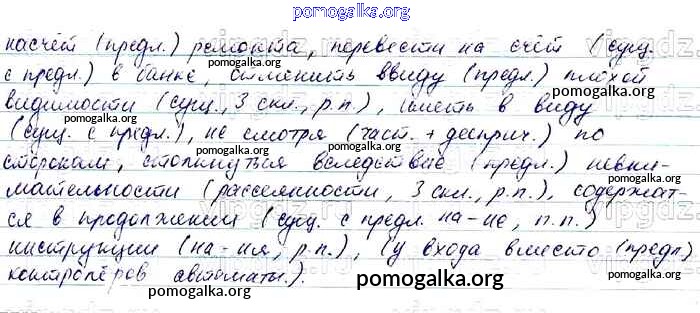 pomogalka.org
насчёт (предл.) ремонта, перевести на счёт (сущ.
с предл.) в банке, отменить ввиду (предл.) плохой
видимости (сущ., 3 скл., р.п.), иметь в виду
(сущ. с предл.), не смотря (част. + дееприч.) по
сторонам, столкнуться вследствие (предл.) невни-
мательности (рассеянности, 3 скл., р.п.), содержат-
ся в продолжении (сущ. с предл. на -ие, п.п.)
инструкции (на -ия, р.п.), (у входа вместо (предл.)
контролёров автоматы.).
pomogalka.org
pomogalka.org
pomogalka.org
pomogalka.org